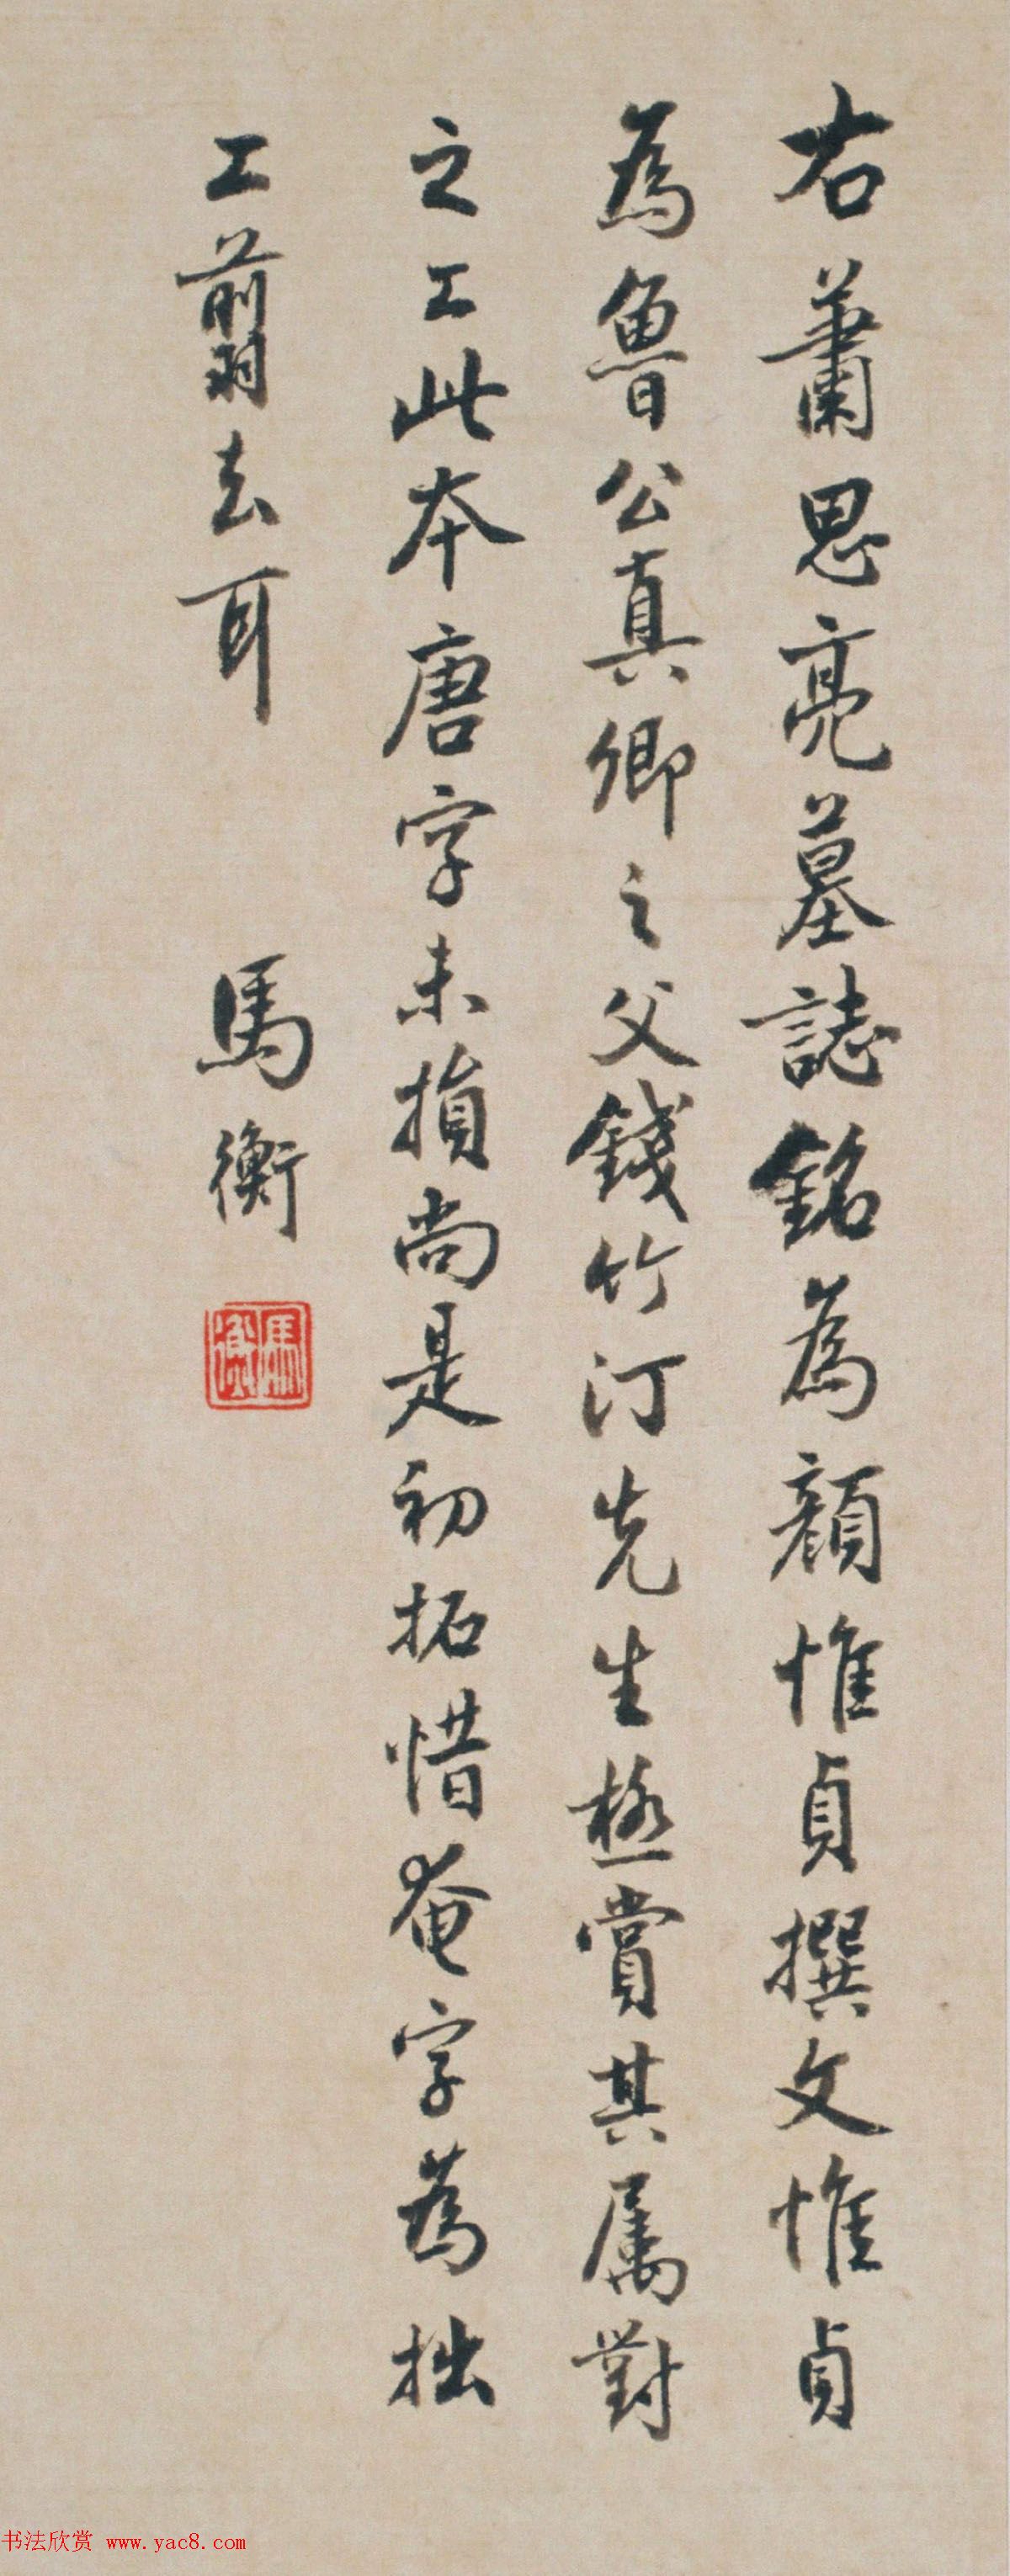 右蕭思亮墓誌銘為顏惟貞撰文惟貞
為魯公真卿之父錢竹汀先生極賞其属對
之工此本唐字未損尚是初拓惜奄字為拙
工翦去耳 馬衡
馬衡
书法欣赏 www.yac8.com